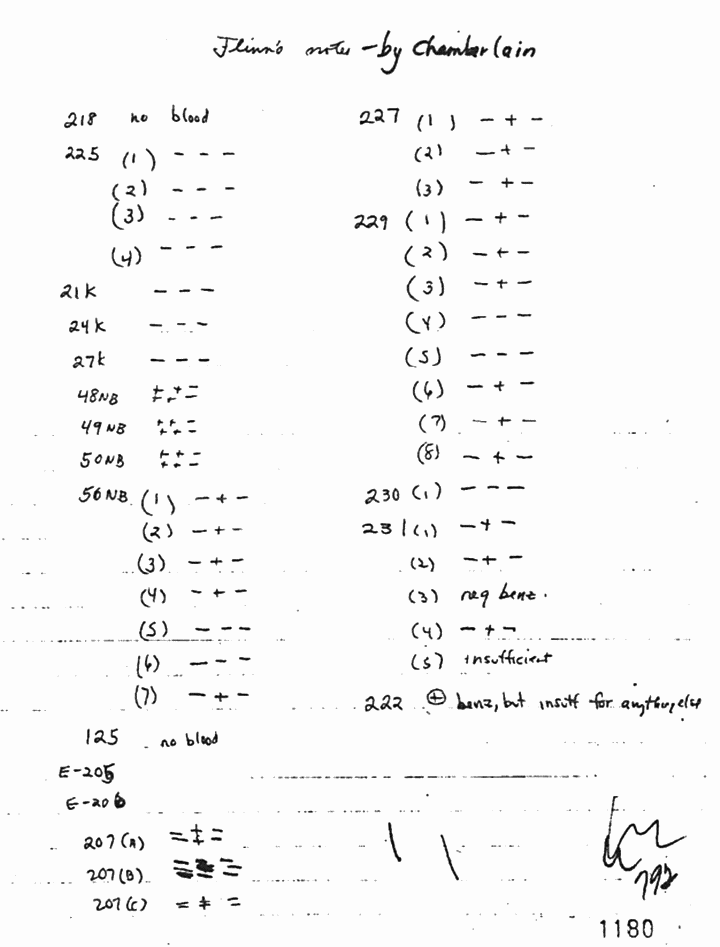 Flinn's notes - by Chamberlain
218 no blood
225 (1) - - -
(2) - - -
(3) - - -
(4) - - -
21K - - -
24K - - -
27K - - -
48NB
49NB
50NB
56NB (1) - + -
(2) - + -
(3) - + -
(4) - + -
(5) - - -
(6) - - -
(7) - + -
125 no blood
E-205
E-206
207(A) = ‡ =
207(B)
207(C) = ‡ =
227 (1) - + -
(2) - + -
(3) - + -
229 (1) - + -
(2) - + -
(3) - + -
(4) - - -
(5) - - -
(6) - + -
(7) - + -
(8) - + -
230 (1) - - -
231 (1) - + -
(2) - + -
(3) neg benz.
(4) - + -
(5) insufficient
222 ⊕ benz, but insuff for anything else
792
1180